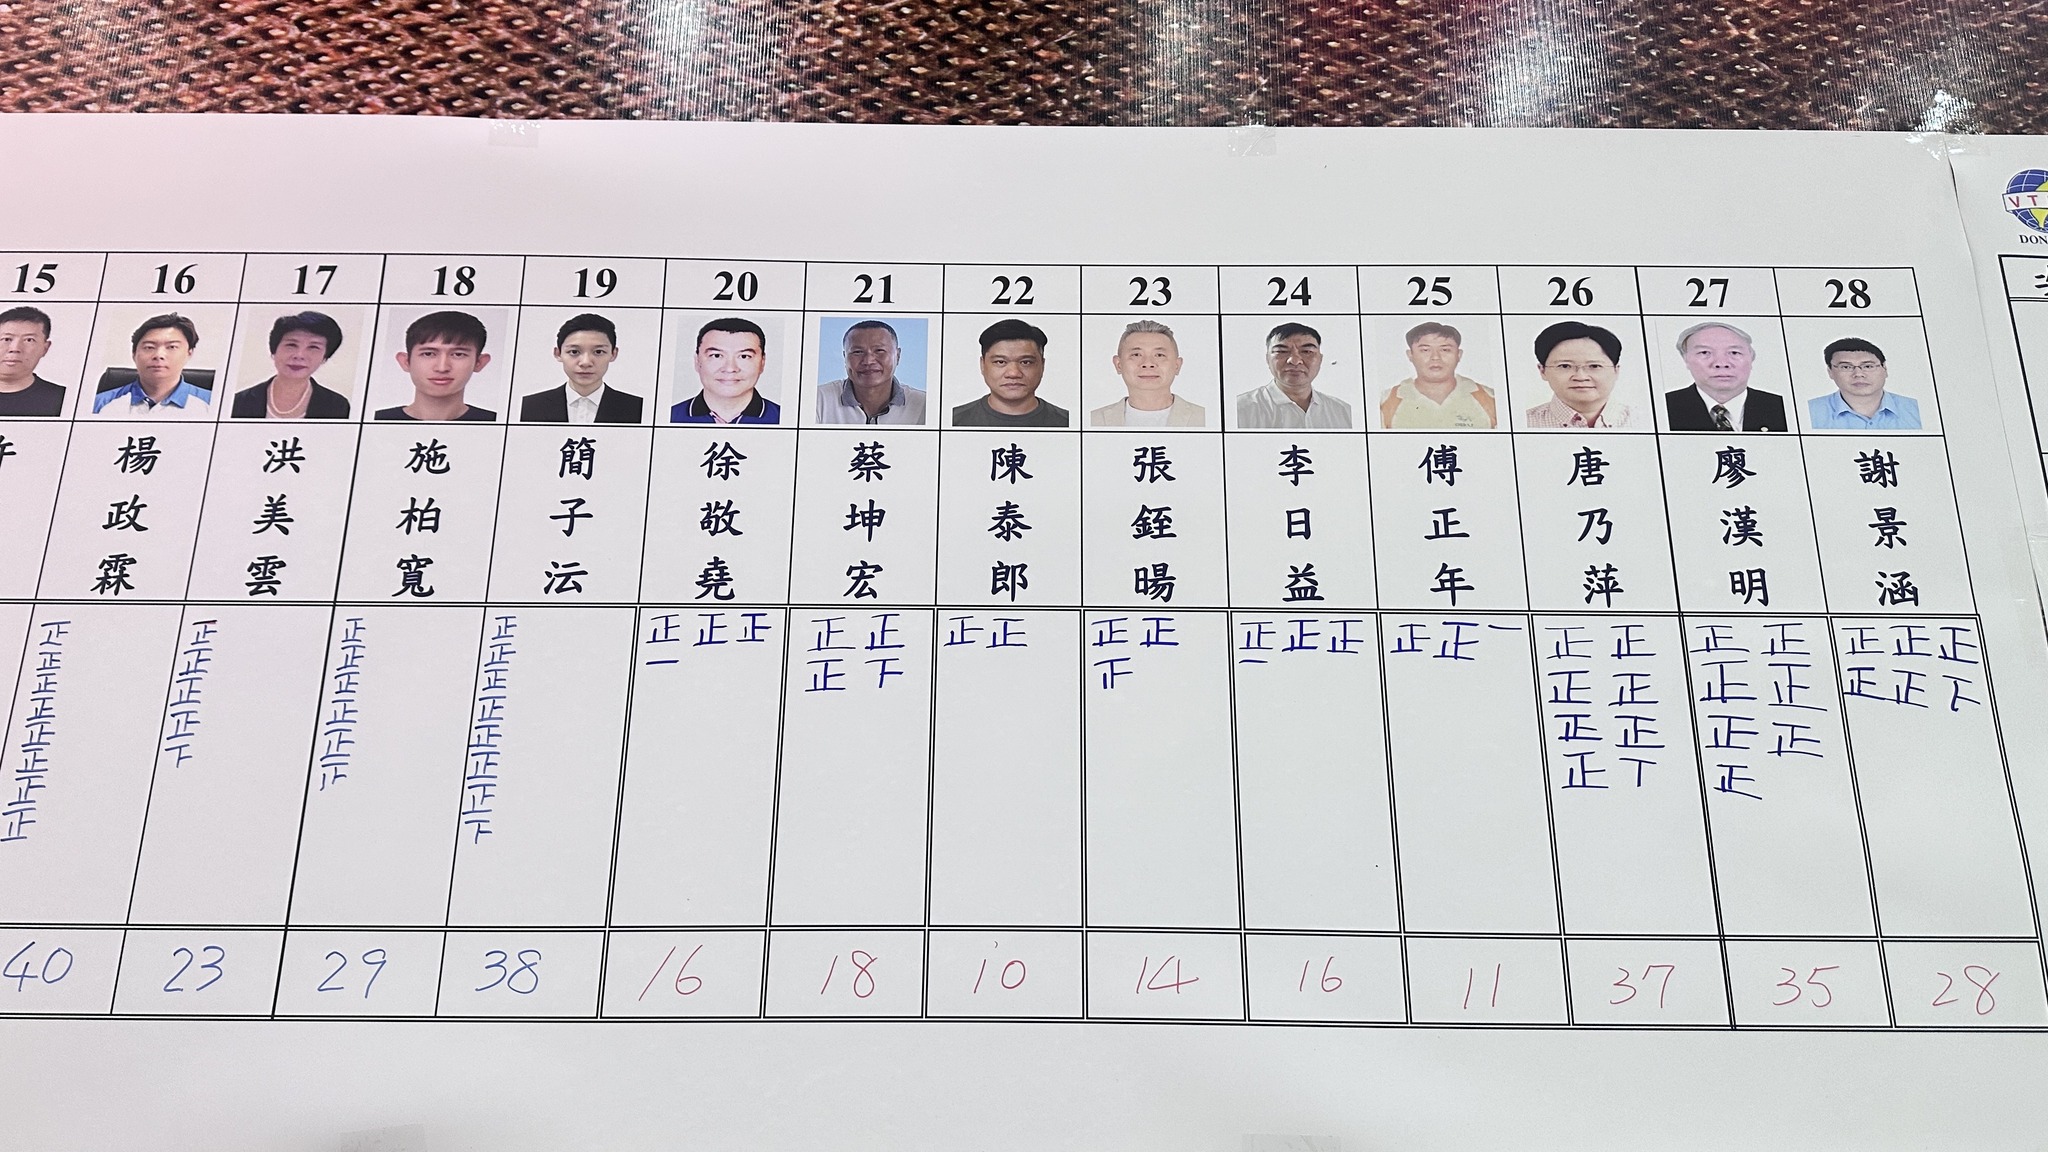 15 16 17 18 19 20 21 22 23 24 25 26 27 28
楊政霖
洪美雲
施柏寬
簡子沄
徐敬堯
蔡坤宏
陳泰郎
張銍暘
李日益
傅正年
唐乃萍
廖漢明
謝景涵
正正正正正正正正
正正正正下
正正正正正正
正正正正正正正下
正正正
一
正正
正下
正正
正正
正
正正正
一
正正一
正正
正正
正正
正丅
正正
正正
正正
正
正正正
正正下
40 23 29 38 16 18 10 14 16 11 37 35 28
VT
DON